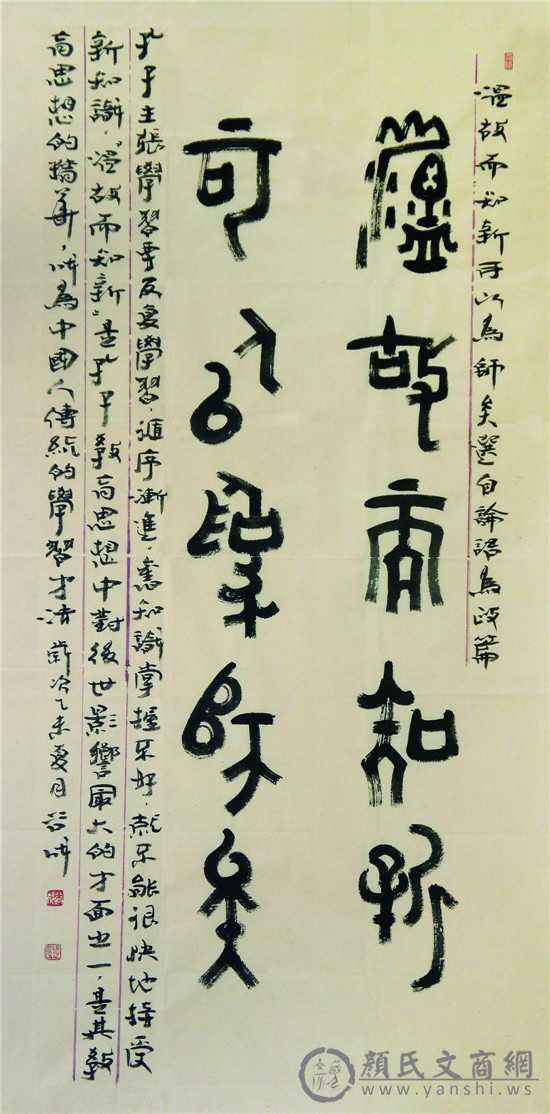 溫故而知新可以為師矣選自論語為政篇
溫故而知新
可以為師矣
孔子主張學習要反复學習，循序漸進，舊知識掌握不好，就不能很快地接受
新知識，“溫故而知新”是孔子教育思想中對後世影響最大的方面之一，是其教
育思想的精華，為中國人傳統的學習方法 歲次乙未夏月
顏氏文商網
www.yanshi.ws